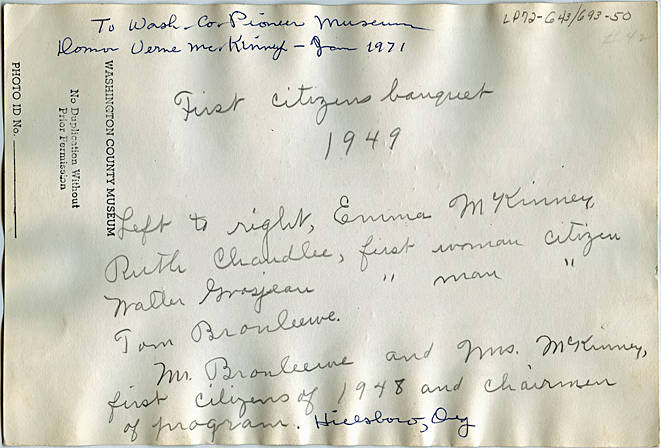 To Wash. Co. Pioneer Museum
Donor Verne McKinney - Jan 1971
LP72-643/693-50
#42
WASHINGTON COUNTY MUSEUM
No Duplication Without
Prior Permission
PHOTO ID No.
First citizens banquet
1949
Left to right, Emma McKinney,
Ruth Chandlee, first woman citizen
Walter Grosjean " man "
Tom Bronleewe.
Mr. Bronleewe and Mrs. McKinney,
first citizens of 1948 and chairmen
of program. Hillsboro, Og